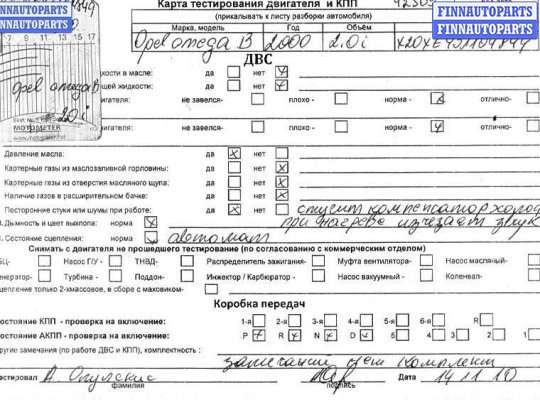 FINNAUTOPARTS
FINNAUTOPARTS
FINNAUTOPARTS
FINNAUTOPARTS
Карта тестирования двигателя и КПП
(прикалывать к листу разборки автомобиля)
Марка, модель Год Объём
Opel omega B 2000 2.0i
17 9 11 13 15 17
Opel omega B
2.0i
MOTOMETER
ДВС
дкости в масле: да нет
щей жидкости: да нет
вигателя: не завелся- плохо - норма - отлично-
вигателя: не завелся- плохо - норма - отлично-
Давление масла: да нет
Картерные газы из маслозаливной горловины: да нет
Картерные газы из отверстия масляного щупа: да нет
Наличие газов в расширительном бачке: да нет
Посторонние стуки или шумы при работе: да нет стучит компенсатор холод
Дымность и цвет выхлопа: норма при нагреве изчезает звук
Состояние сцепления: автомат
Снимать с двигателя не прошедшего тестирование (по согласованию с коммерческим отделом)
БЦ- Насос Г/У - ТНВД- Распределитель зажигания- Муфта вентилятора- Насос масляный-
енератор- Турбина - Поддон- Инжектор / Карбюратор - Насос вакуумный - Коленвал-
цепление только 2-хмассовое, в сборе с маховиком-
Коробка передач
остояние КПП - проверка на включение: 1-я 2-я 3-я 4-я 5-я 6-я R
остояние АКПП - проверка на включение: P R N D 5 4 3 2 1
ругие замечания (по работе ДВС и КПП), комплектность : замечаний нет комплект
естировал фамилия подпись Дата 14 11 10